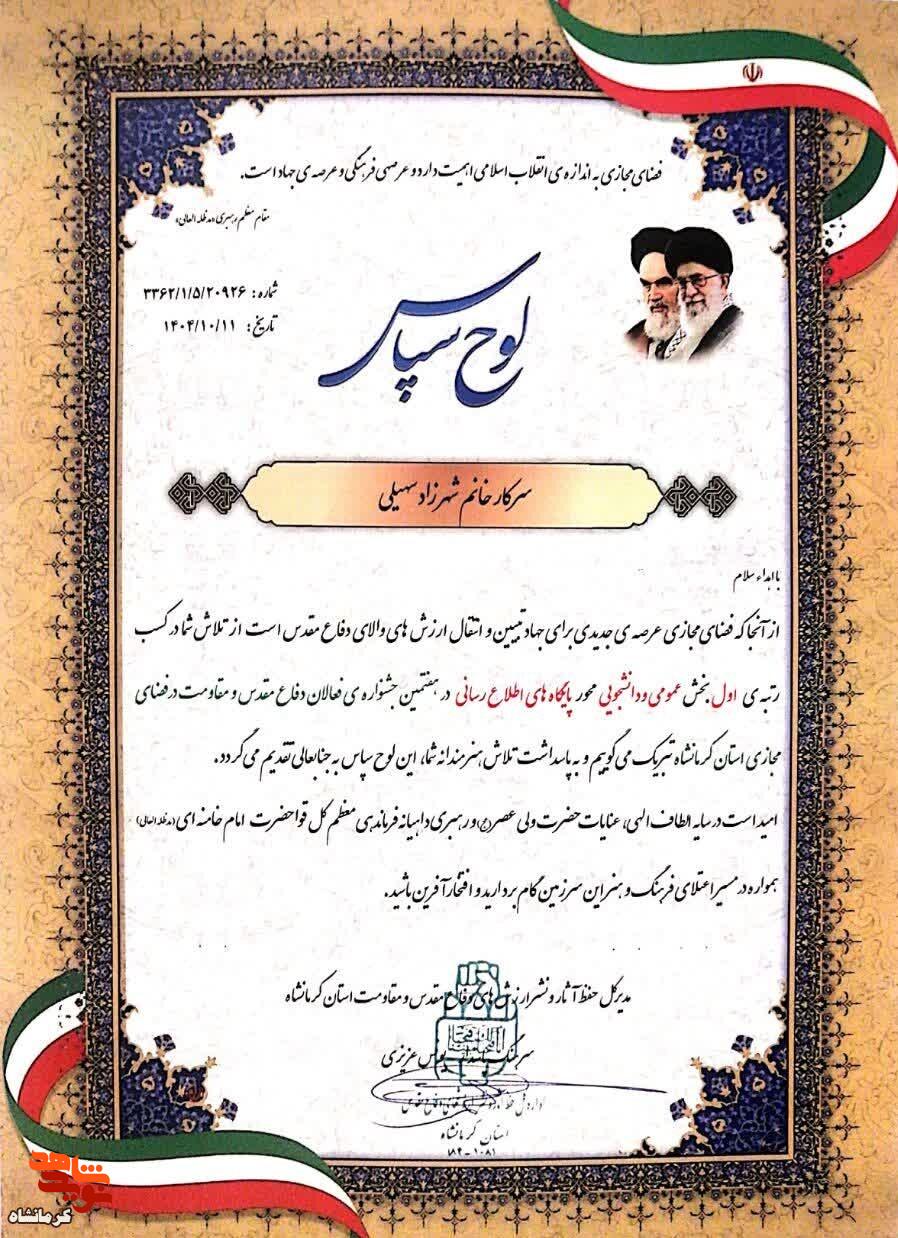 فضای مجازی به اندازه ی انقلاب اسلامی اهمیت دارد و عرصه ی فرهنگی و عرصه ی جهاد است.
مقام معظم رهبری (مدظله العالی)
شماره: ۳۳۶۲/۱/۵/۲۰۹۲۶
تاریخ: ۱۴۰۴/۱۰/۱۱
لوح سپاس
سرکار خانم شهرزاد سهیلی
با اهداء سلام
از آنجا که فضای مجازی عرصه ی جدیدی برای جهاد تبیین و انتقال ارزش های والای دفاع مقدس است از تلاش شما در کسب
رتبه ی اول بخش عمومی و دانشجویی محور پایگاه های اطلاع رسانی در هفتمین جشنواره ی فعالان دفاع مقدس و مقاومت در فضای
مجازی استان کرمانشاه تبریک می گوییم و به پاسداشت تلاش هنرمندانه شما، این لوح سپاس به جنابعالی تقدیم می گردد.
امید است در سایه الطاف الهی، عنایات حضرت ولی عصر(عج) و رهبری داهیانه فرماندهی معظم کل قوا حضرت امام خامنه ای (مدظله العالی)
همواره در مسیر اعتلای فرهنگ و هنر این سرزمین گام بردارید و افتخارآفرین باشید.
مدیرکل حفظ آثار و نشر ارزش های دفاع مقدس و مقاومت استان کرمانشاه
سرهنگ عزیزی
استان کرمانشاه
۱۸۴-۱۰۸۱
نوید شاهد
کرمانشاه